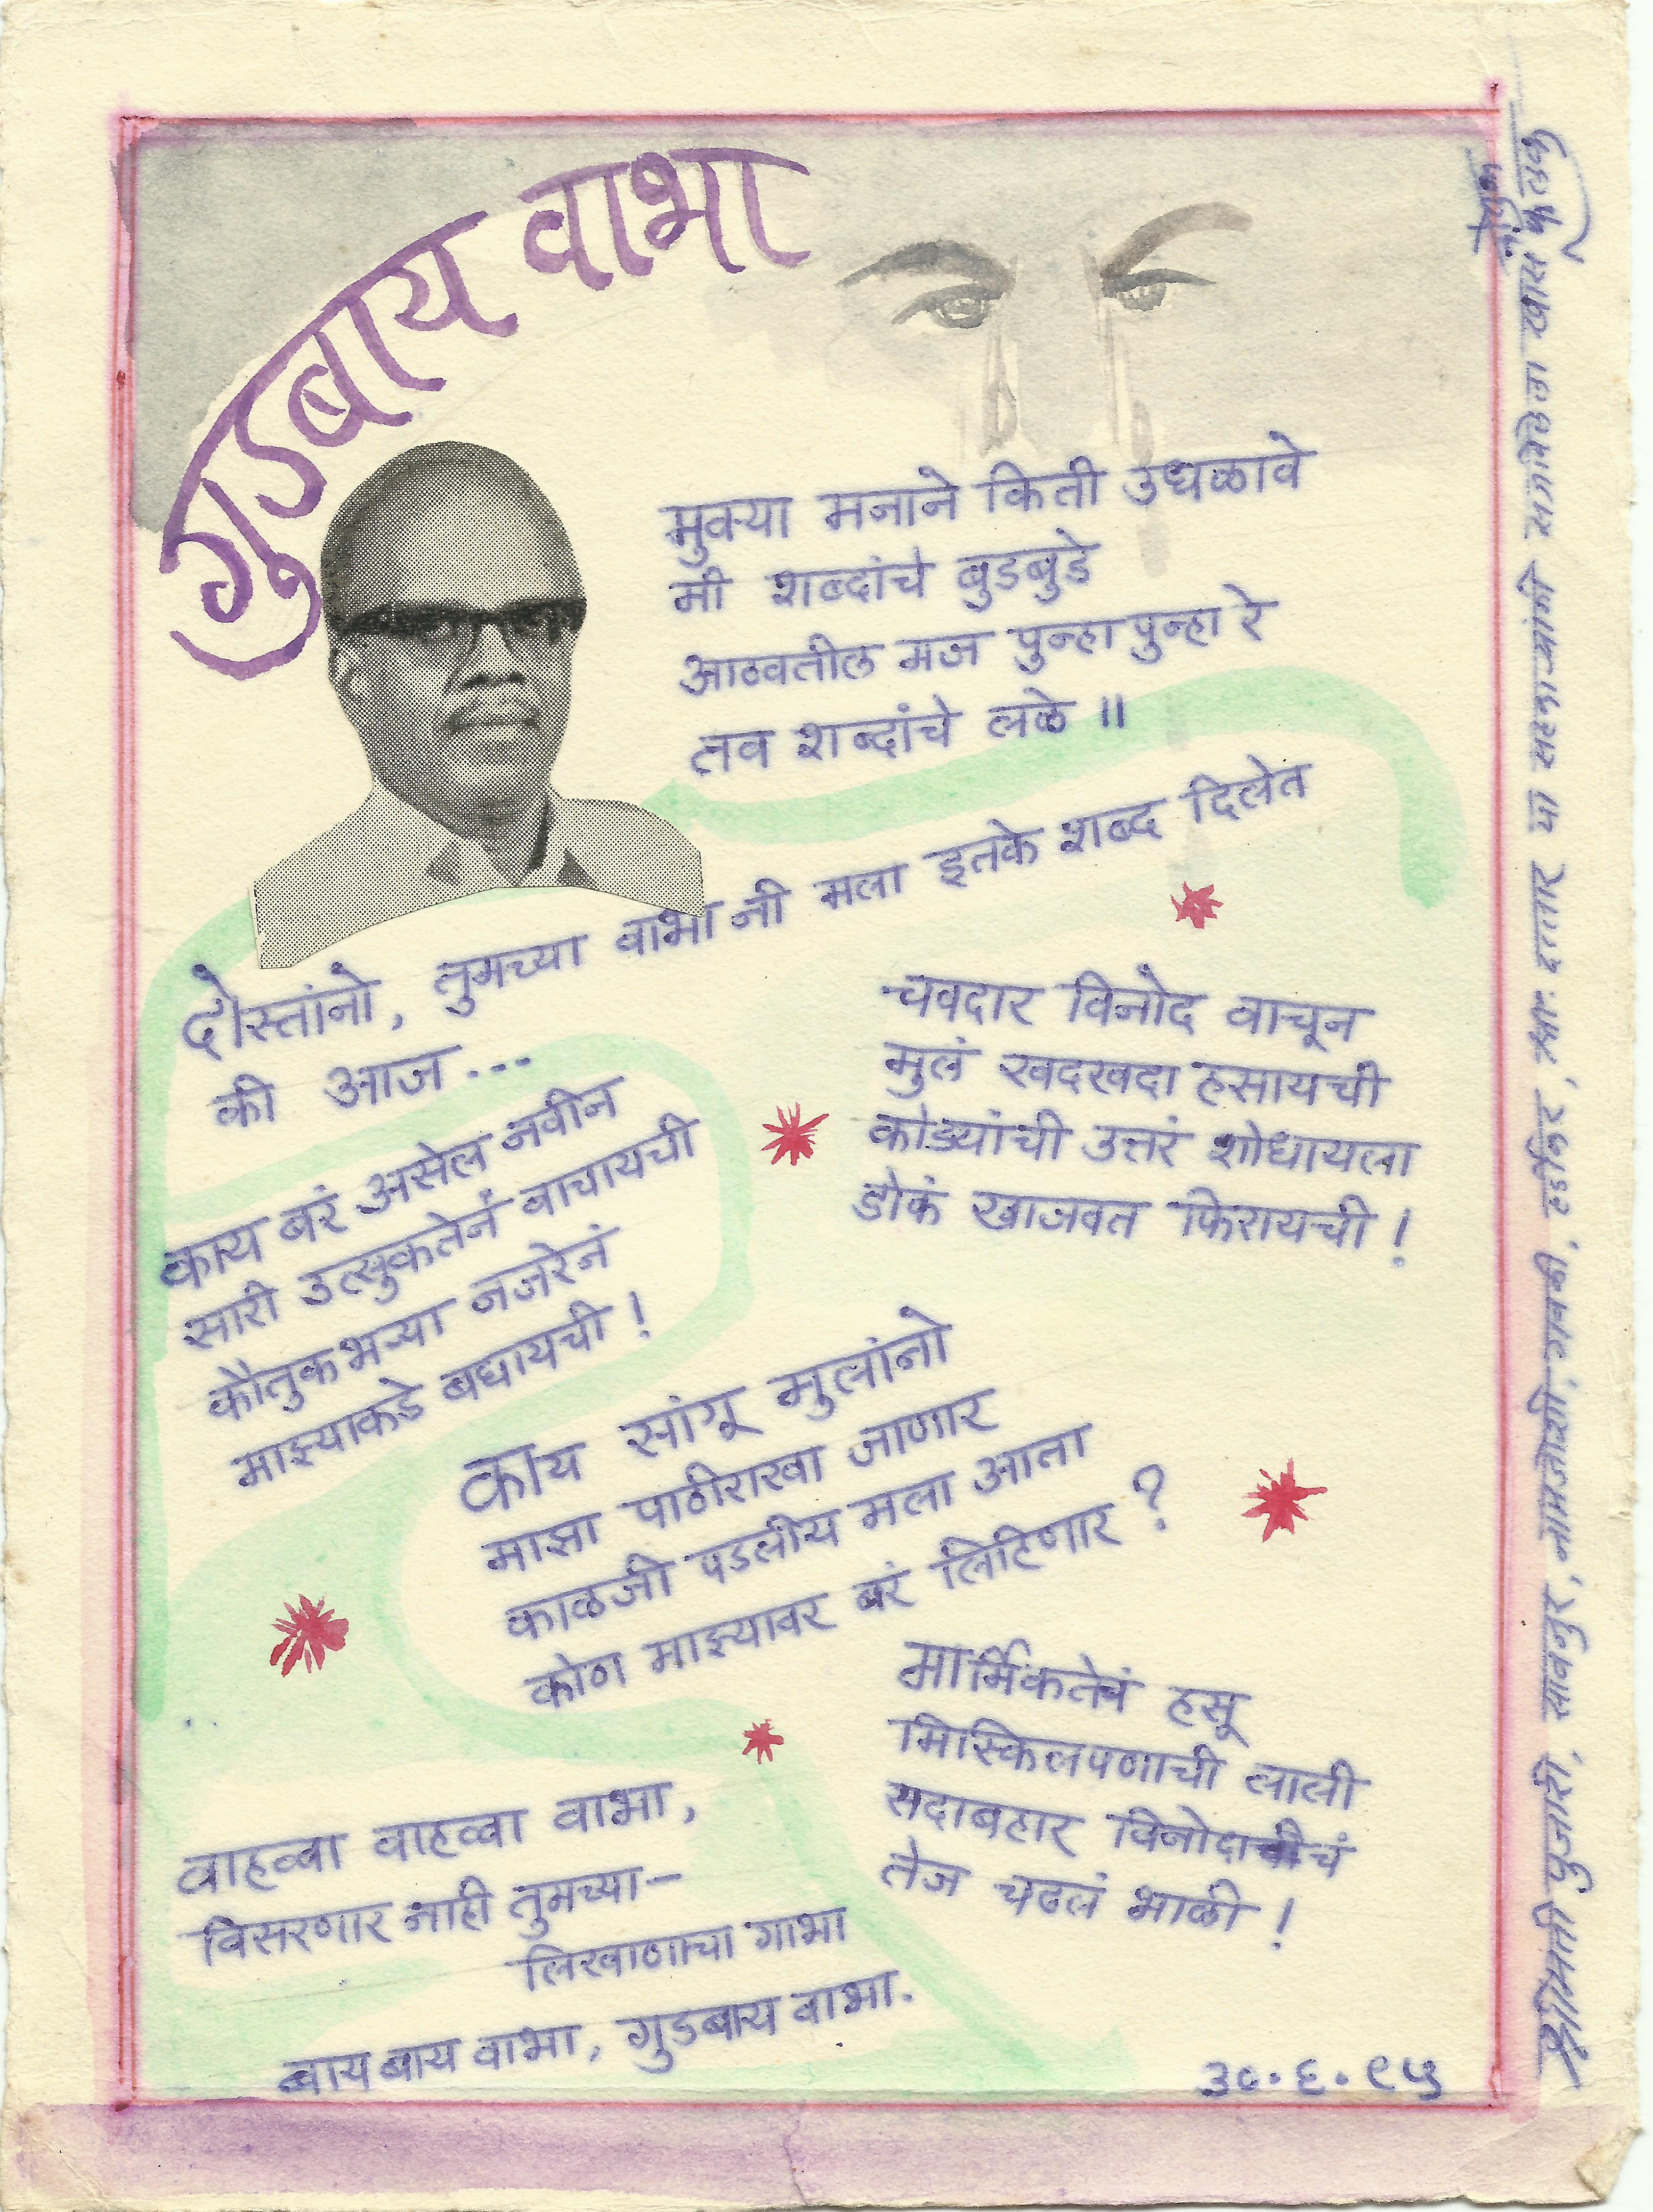 गुडबाय वाभा
मुक्या मनाने किती उधळावे
मी शब्दांचे बुडबुडे
आठवतील मज पुन्हा पुन्हा रे
तव शब्दांचे लळे ॥
दोस्तांनो, तुमच्या वाभानी मला इतके शब्द दिलेत
की आज ...
काय बरं असेल नवीन
सारी उत्सुकतेनं वाचायची
कौतुकभऱ्या नजरेनं
माझ्याकडे बघायची !
चवदार विनोद वाचून
मुलं खदखदा हसायची
कोड्यांची उत्तरं शोधायला
डोकं खाजवत फिरायची !
काय सांगू मुलांनो
माझा पाठीराखा जाणार
काळजी पडलीय मला आता
कोण माझ्यावर बरं लिहिणार ?
मार्मिकतेचं हसू
मिस्किलपणाची लाली
सदाबहार विनोदाचं
तेज चढलं भाळी !
वाहव्वा वाहव्वा वाभा,
विसरणार नाही तुमच्या-
लिखाणाचा गाभा
बाय बाय वाभा, गुडबाय वाभा.
३०.६.९५
श्रीमती पुजारी, सानगुर, नामजोशी, हडपुर, दातार या सहकाऱ्यांनी